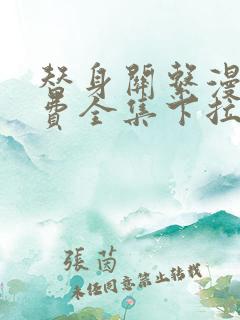 替身關繫漫
費全集下拉
張茵
未经同意禁止转载